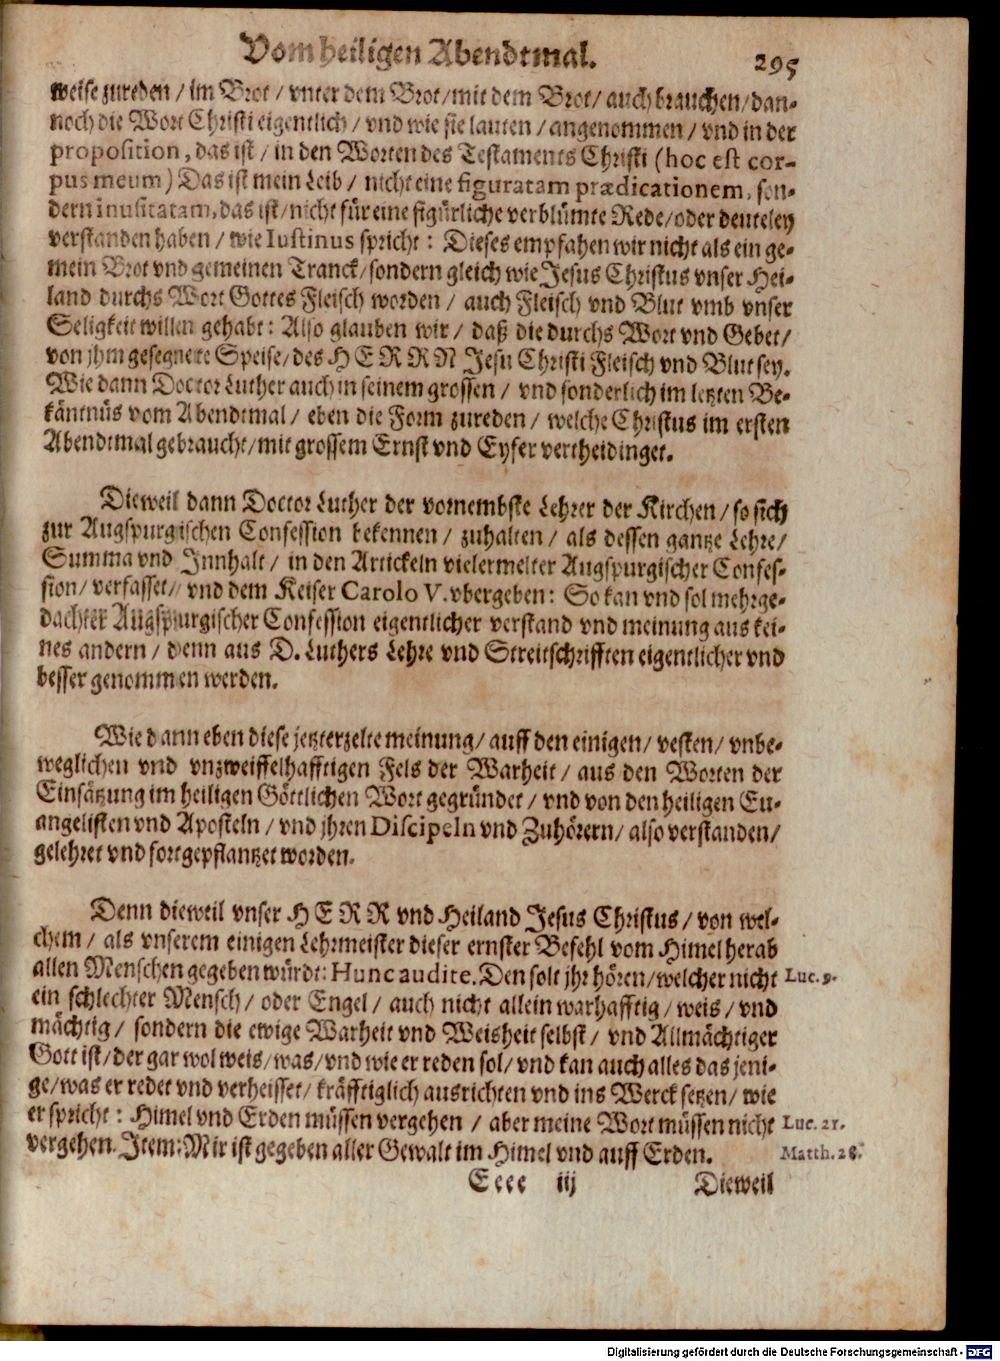 Vom heiligen Abendtmal. 295
weise zureden / im Brot / vnter dem Brot / mit dem Brot / auch brauchen / dan-
noch die Wort Christi eigentlich / vnd wie sie lauten / angenommen / vnd in der
proposition, das ist / in den Worten des Testaments Christi (hoc est cor-
pus meum) Das ist mein Leib / nicht eine figuratam prædicationem, son-
dern inusitatam, das ist / nicht für eine figürliche verblümte Rede / oder deuteley
verstanden haben / wie Iustinus spricht : Dieses empfahen wir nicht als ein ge-
mein Brot vnd gemeinen Tranck / sondern gleich wie Jesus Christus vnser Hei-
land durchs Wort Gottes Fleisch worden / auch Fleisch vnd Blut vmb vnser
Seligkeit willen gehabt : Also glauben wir / daß die durchs Wort vnd Gebet /
von jhm gesegnete Speise / des HERRN Jesu Christi Fleisch vnd Blut sey.
Wie dann Doctor Luther auch in seinem grossen / vnd sonderlich im letzten Be-
käntnüs vom Abendtmal / eben die Form zureden / welche Christus im ersten
Abendtmal gebraucht / mit grossem Ernst vnd Eyfer vertheidinget.
Dieweil dann Doctor Luther der vornembste Lehrer der Kirchen / so sich
zur Augspurgischen Confession bekennen / zuhalten / als dessen gantze Lehre /
Summa vnd Innhalt / in den Artickeln vielermelter Augspurgischer Confes-
sion / verfasset / vnd dem Keiser Carolo V. vbergeben : So kan vnd sol mehrge-
dachter Augspurgischer Confession eigentlicher verstand vnd meinung aus kei-
nes andern / denn aus D. Luthers Lehre vnd Streitschrifften eigentlicher vnd
besser genommen werden.
Wie dann eben diese jetzterzelte meinung / auff den einigen / vesten / vnbe-
weglichen vnd vnzweiffelhafftigen Fels der Warheit / aus den Worten der
Einsätzung im heiligen Göttlichen Wort gegründet / vnd von den heiligen Eu-
angelisten vnd Aposteln / vnd jhren Discipeln vnd Zuhörern / also verstanden /
gelehret vnd fortgepflantzet worden.
Denn dieweil vnser HERR vnd Heiland Jesus Christus / von wel-
chem / als vnserem einigen Lehrmeister dieser ernster Befehl vom Himel herab
allen Menschen gegeben würdt : Hunc audite. Den solt jhr hören / welcher nicht Luc. 9.
ein schlechter Mensch / oder Engel / auch nicht allein warhafftig / weis / vnd
mächtig / sondern die ewige Warheit vnd Weisheit selbst / vnd Allmächtiger
Gott ist / der gar wol weis / was / vnd wie er reden sol / vnd kan auch alles das jeni-
ge / was er redet vnd verheisset / kräfftiglich ausrichten vnd ins Werck setzen / wie
er spricht : Himel vnd Erden müssen vergehen / aber meine Wort müssen nicht Luc. 21.
vergehen. Item : Mir ist gegeben aller Gewalt im Himel vnd auff Erden. Matth. 28.
Eeee iij Dieweil
Digitalisierung gefördert durch die Deutsche Forschungsgemeinschaft - DFG